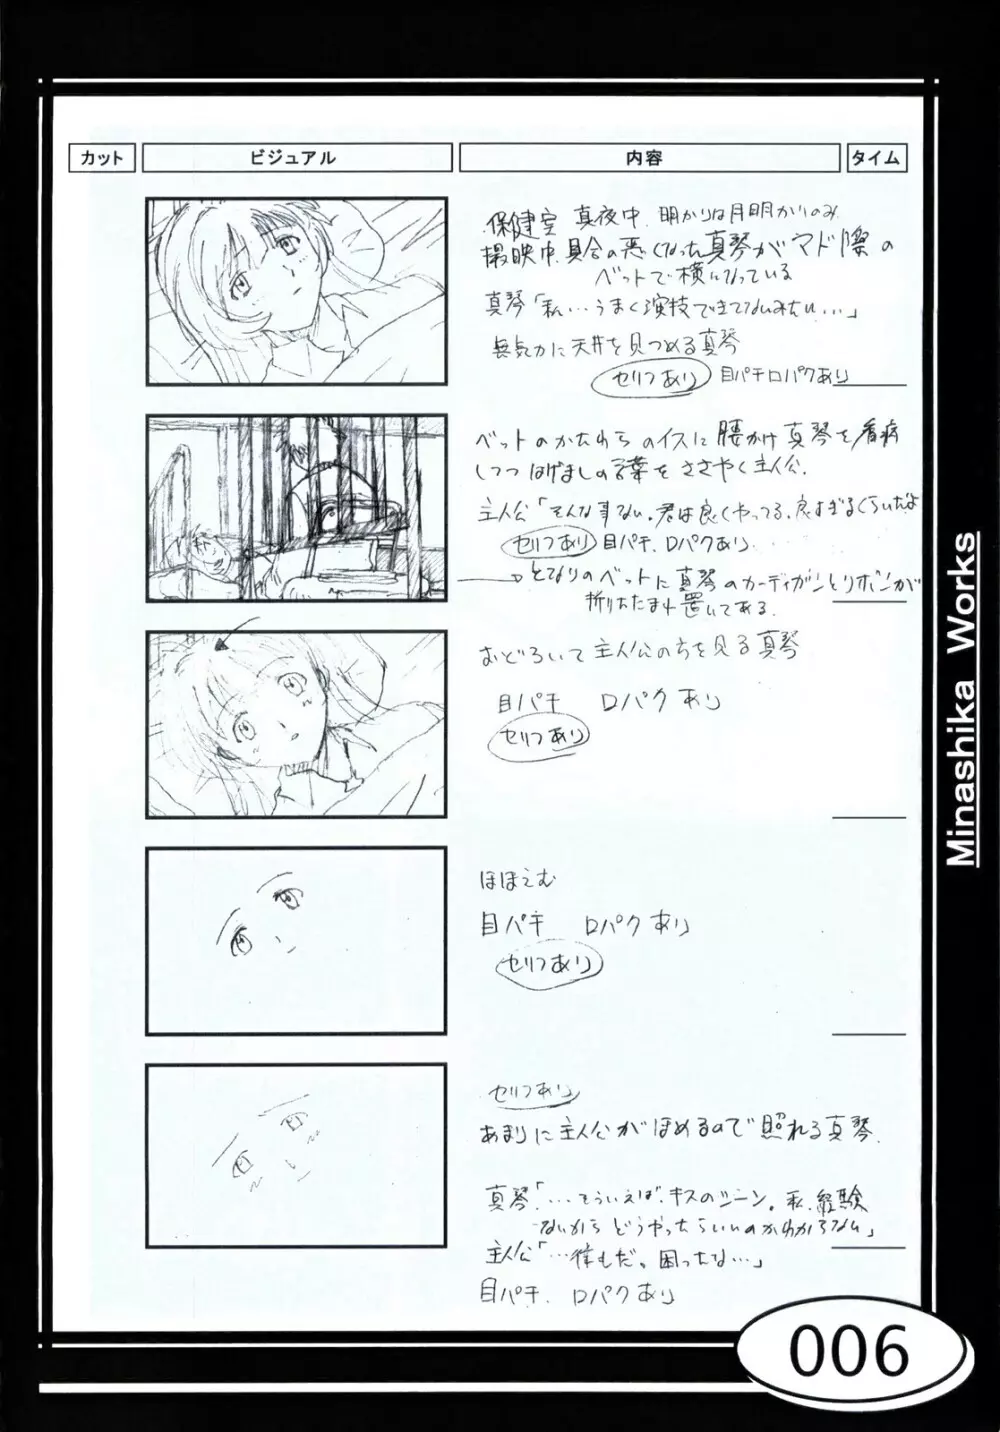 カット ビジュアル 内容 タイム
保健室 真夜中 明かりは月明かりのみ
撮映中、具合の悪くなった真琴がマド際の
ベットで横になっている
真琴「私…うまく演技できてないみたい…」
無気力に天井を見つめる真琴
セリフあり 目パチ口パクあり
ベットのかたわらのイスに腰かけ真琴を看病
しつつはげましの言葉をささやく主人公、
主人公「そんな事ない。君は良くやってる、良すぎるくらいだよ
セリフあり 目パチ、口パクあり
となりのベットに真琴のカーディガンとリボンが
折りたたまれ置いてある、
おどろいて主人公の方を見る真琴
目パチ 口パクあり
セリフあり
ほほえむ
目パチ 口パクあり
セリフあり
セリフあり
あまりに主人公がほめるので照れる真琴、
真琴「…そういえば、キスのシーン。私、経験
ないからどうやったらいいのかわからない」
主人公「…僕もだ。困ったな…」
目パチ、口パクあり
Minashika Works
006